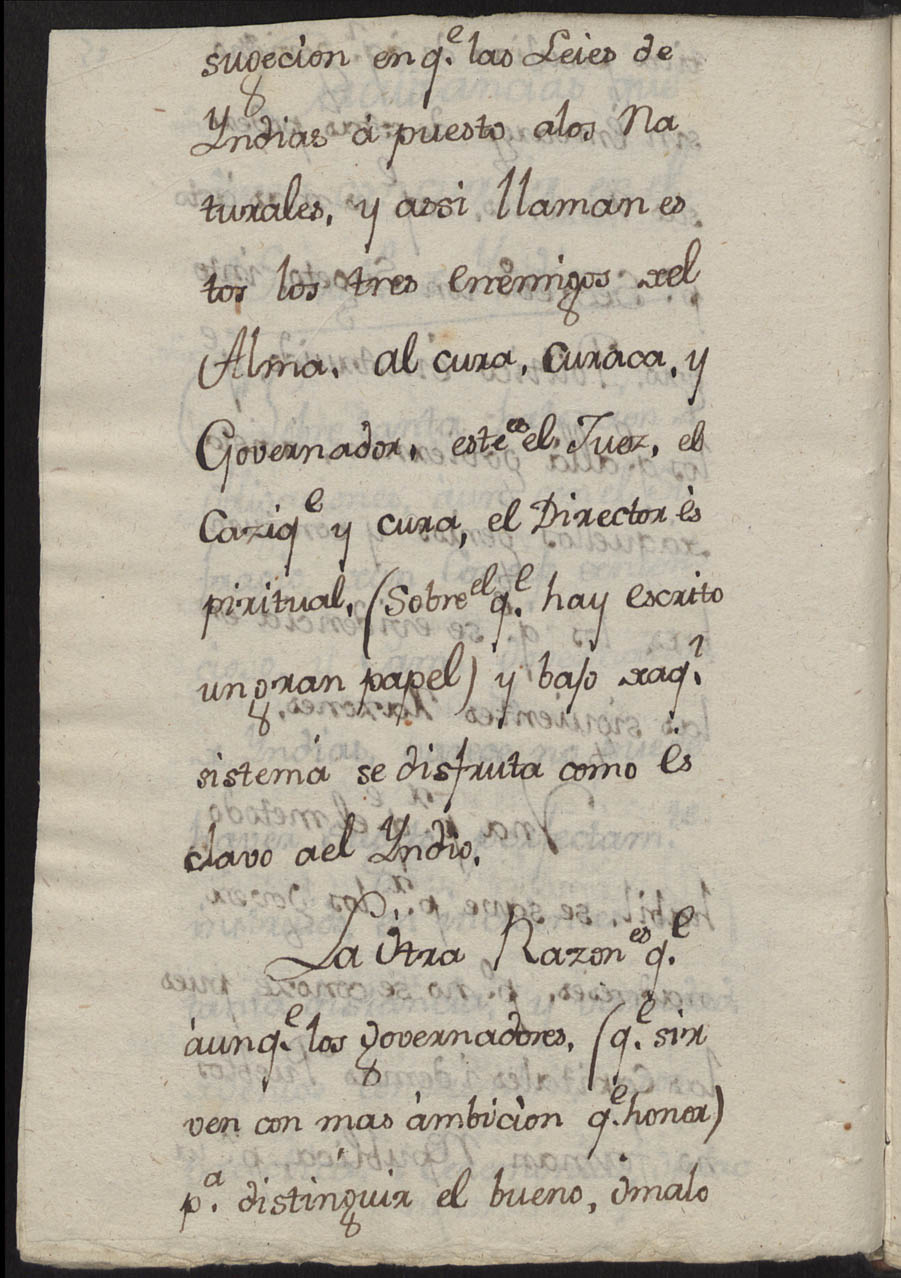 sugecion en q.e las Leies de
Yndias à puesto alos Na
turales, y assi llaman es
tos los tres enemigos del
Alma. al cura, Curaca, y
Governador, este es el Juez, el
Caziq.e y cura, el Director ès
piritual, (Sobre el q.e hay escrito
un gran papel) y bajo daq.l
sistema se disfruta como Es
clavo del Yndio.
La ótra Razon es q.e
áunq.e los governadores, (q.e sir
ven con mas àmbiciòn q.e honor)
p.a distinguir el bueno, ómalo